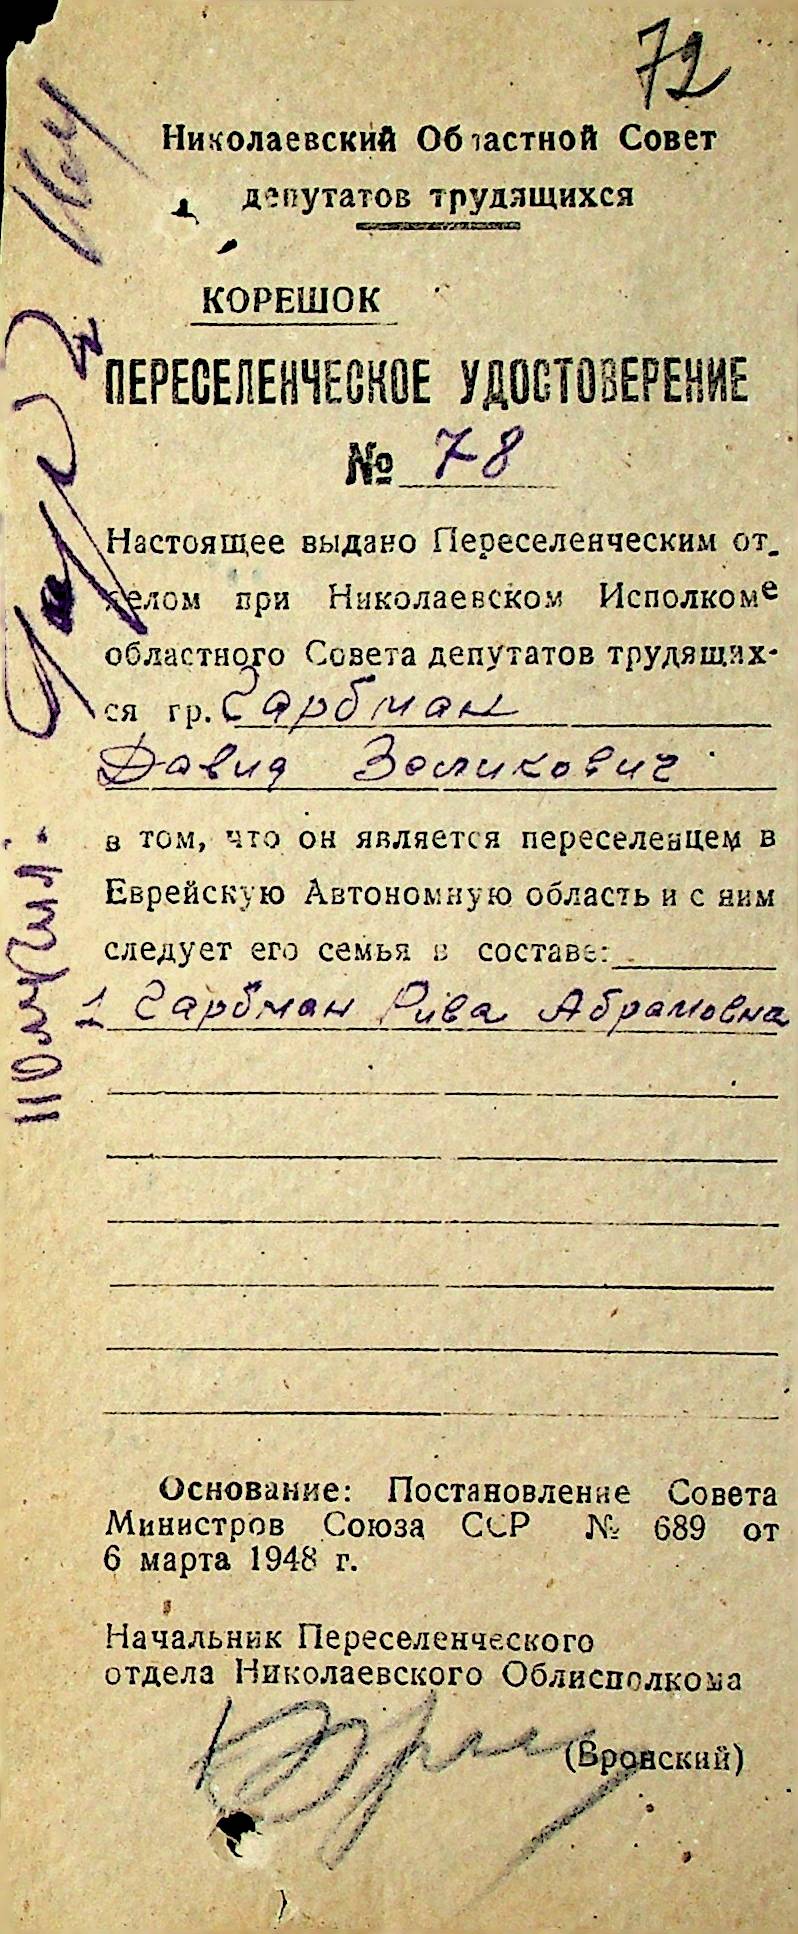 72
Николаевский Областной Совет
депутатов трудящихся
КОРЕШОК
ПЕРЕСЕЛЕНЧЕСКОЕ УДОСТОВЕРЕНИЕ
№ 78
Настоящее выдано Переселенческим от-
делом при Николаевском Исполкоме
областного Совета депутатов трудящих-
ся гр. Гарбман
Давид Зеликович
в том, что он является переселенцем в
Еврейскую Автономную область и с ним
следует его семья в составе:
1 Гарбман Рива Абрамовна
Основание: Постановление Совета
Министров Союза ССР № 689 от
6 марта 1948 г.
Начальник Переселенческого
отдела Николаевского Облисполкома
(Вронский)
получил: